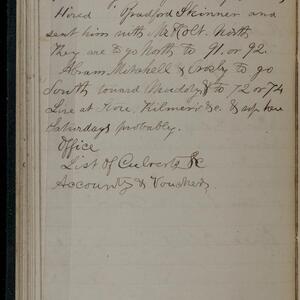 Hired Bradford Skinner and
sent him with Mr Holt. North
They are to go North to 91. or 92.
Abram Mitchell & Crosby to go
South toward to 72 or 74
Line at Kilmer's &c. &
Saturday probably.
Office
List of Culverts &c
Accounts & Vouchers